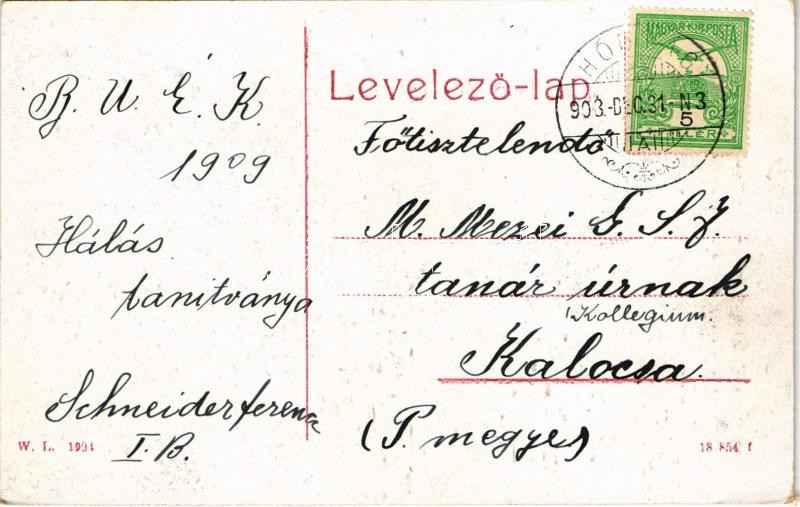 B. U. É. K.
1909
Hálás
tanitványa
Schneider ferenc
I. B.
W. L. 1994
Levelező-lap
MAGYAR KIR. POSTA
5
FILLÉR
903.-DEC.31.-N3
Főtisztelendő
M. Mezei G. S. J.
tanár úrnak
Kollegium.
Kalocsa.
(P. megye)
18 854 f